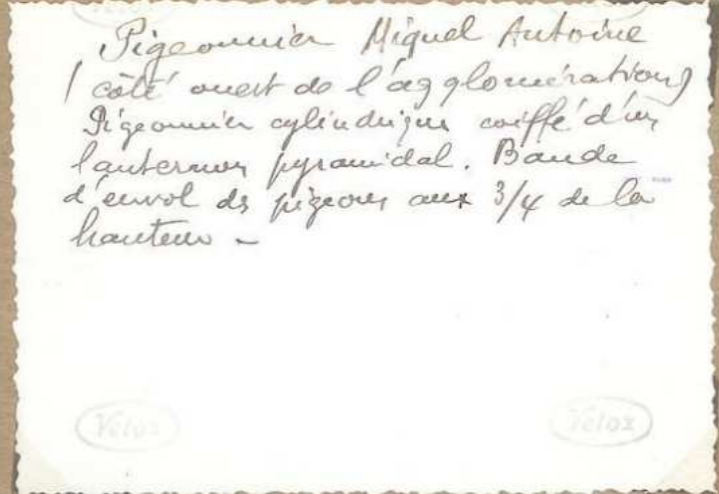 Pigeonnier Miquel Antoine
(côté ouest de l'agglomération)
Pigeonnier cylindrique coiffé d'un
lanternon pyramidal. Bande
d'envol des pigeons aux 3/4 de la
hauteur -
Velox Velox